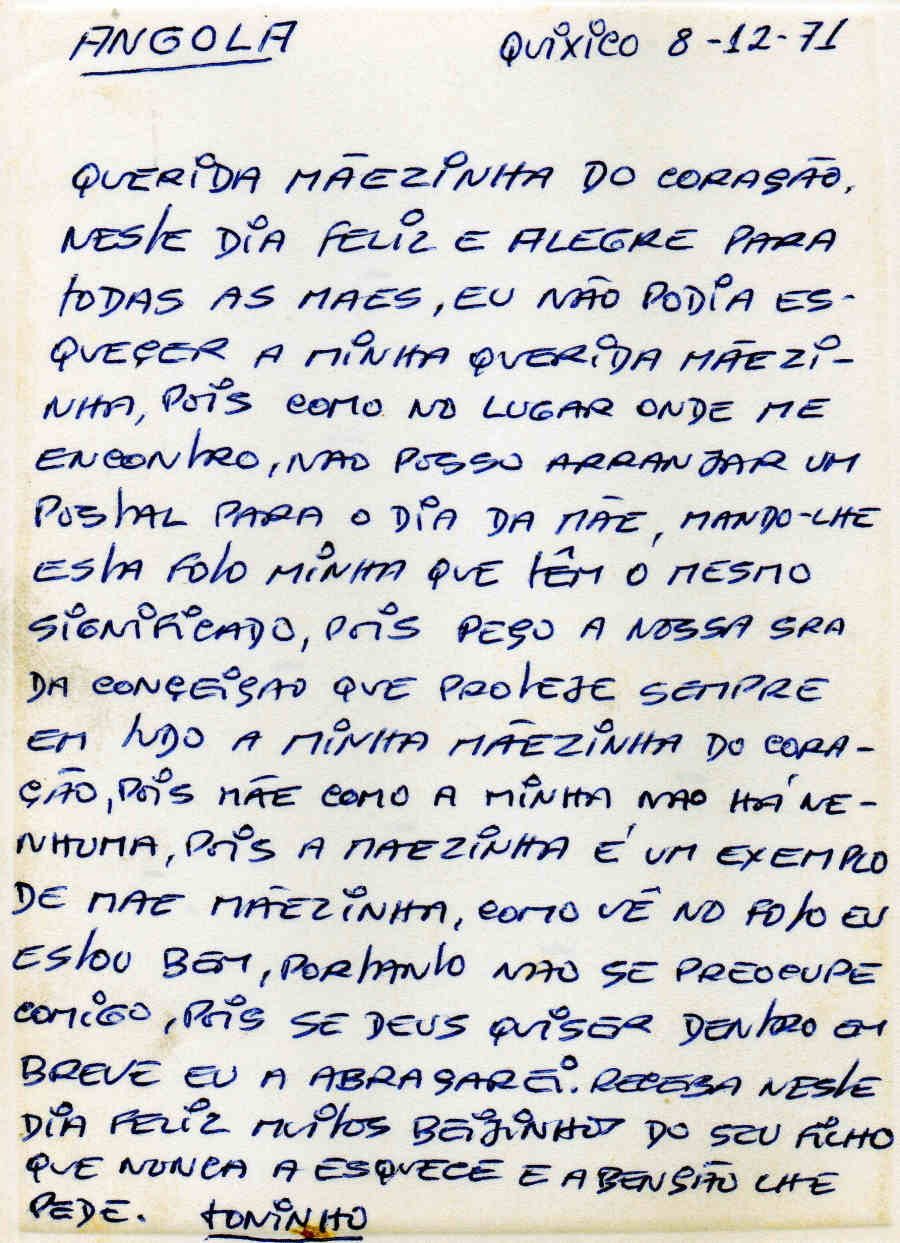 ANGOLA QUIXICO 8-12-71
QUERIDA MÃEZINHA DO CORAÇÃO.
NESTE DIA FELIZ E ALEGRE PARA
TODAS AS MAES, EU NÃO PODIA ES-
QUEÇER A MINHA QUERIDA MÃEZI-
NHA, POIS COMO NO LUGAR ONDE ME
ENCONTRO, NAO POSSO ARRANJAR UM
POSTAL PARA O DIA DA MÃE, MANDO-LHE
ESTA FOTO MINHA QUE TÊM O MESMO
SIGNIFICADO, POIS PEÇO A NOSSA SRA
DA CONÇEIÇAO QUE PROTEJE SEMPRE
EM TUDO A MINHA MÃEZINHA DO CORA-
ÇÃO, POIS MÃE COMO A MINHA NAO HÁ NE-
NHUMA, POIS A MAEZINHA É UM EXEMPLO
DE MAE MÃEZINHA, COMO VÊ NO FOTO EU
ESTOU BEM, PORTANTO NAO SE PREOCUPE
COMIGO, POIS SE DEUS QUISER DENTRO EM
BREVE EU A ABRAÇAREI. RECEBA NESTE
DIA FELIZ MUITOS BEIJINHOS DO SEU FILHO
QUE NUNCA A ESQUECE E A BENSÃO LHE
PEDE. TONINHO